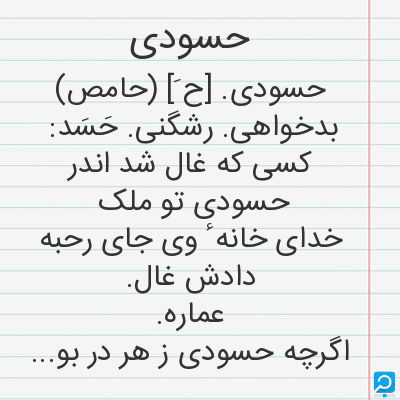 حسودی
حسودی. [ح َ] (حامص)
بدخواهی. رشگنی. حَسَد:
کسی که غال شد اندر
حسودی تو ملک
خدای خانه ٔ وی جای رحبه
دادش غال.
عماره.
اگرچه حسودی ز هر در بو...